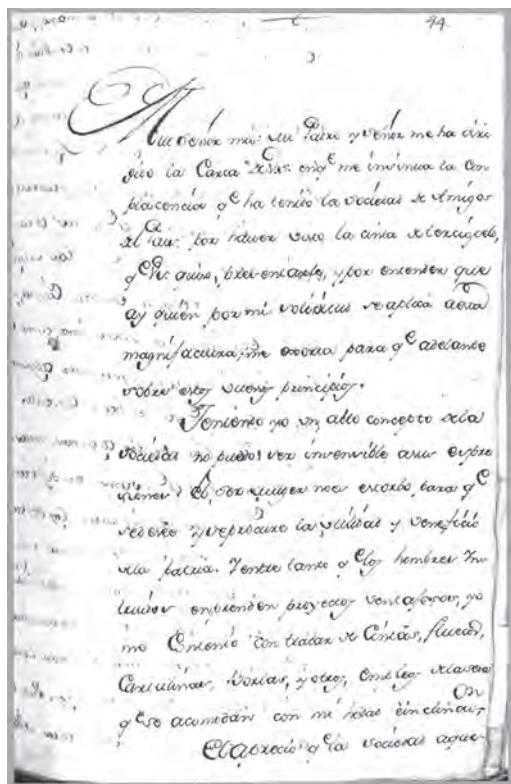 44
Mui señor mio: mi Padre y señor me ha diri
gido la Carta de Vss: en qe me insinua la Com
placencia qe ha tenido la Sociedad de Amigos
del Pais: por haver visto la cinta de terciopelo,
qe les quise, presentarse, y por entender que
ay quien por mi solicitud se aplica a esta
magnifactura, me exorta para qe adelante
sobre estos buenos principios.
Teniendo yo un alto concepto de la
Sociedad no puedo ser insensible a sus expre
siones: el ser muger no es estorbo para qe
se desee y se procure la utilidad y veneficio
de la patria. Y entre tanto qe los hombres
enprenden proyectos ventajosos, yo
me Contento con tratar de Cintas, fluecos,
y otros, de la seda
qe se acomodan con mi inclinacion
El aprecio qe la Sociedad aque